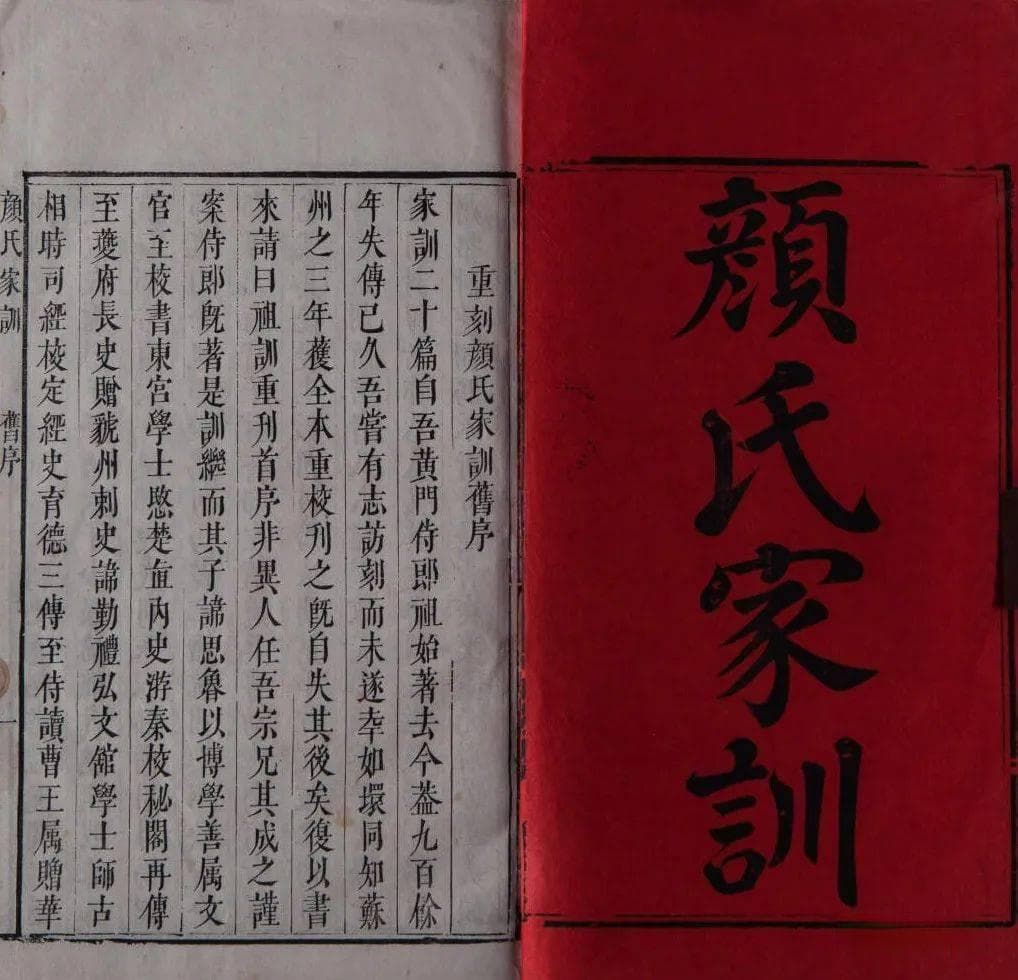 顏氏家訓
重刻顏氏家訓舊序
家訓二十篇自吾黃門侍郎祖始著去今葢九百餘
年失傳已久吾嘗有志訪刻而未遂幸如環同知蘇
州之三年獲全本重校刊之旣自失其後矣復以書
來請曰祖訓重刊首序非異人任吾宗兄其成之謹
案侍郎旣著是訓繼而其子諱思魯以博學善属文
官至校書東宮學士愍楚直內史游秦校秘閣再傳
至夔府長史贈虢州刺史諱勤禮弘文館學士師古
相時司經校定經史育德三傳至侍讀曹王属贈華
顏氏家訓 舊序 一